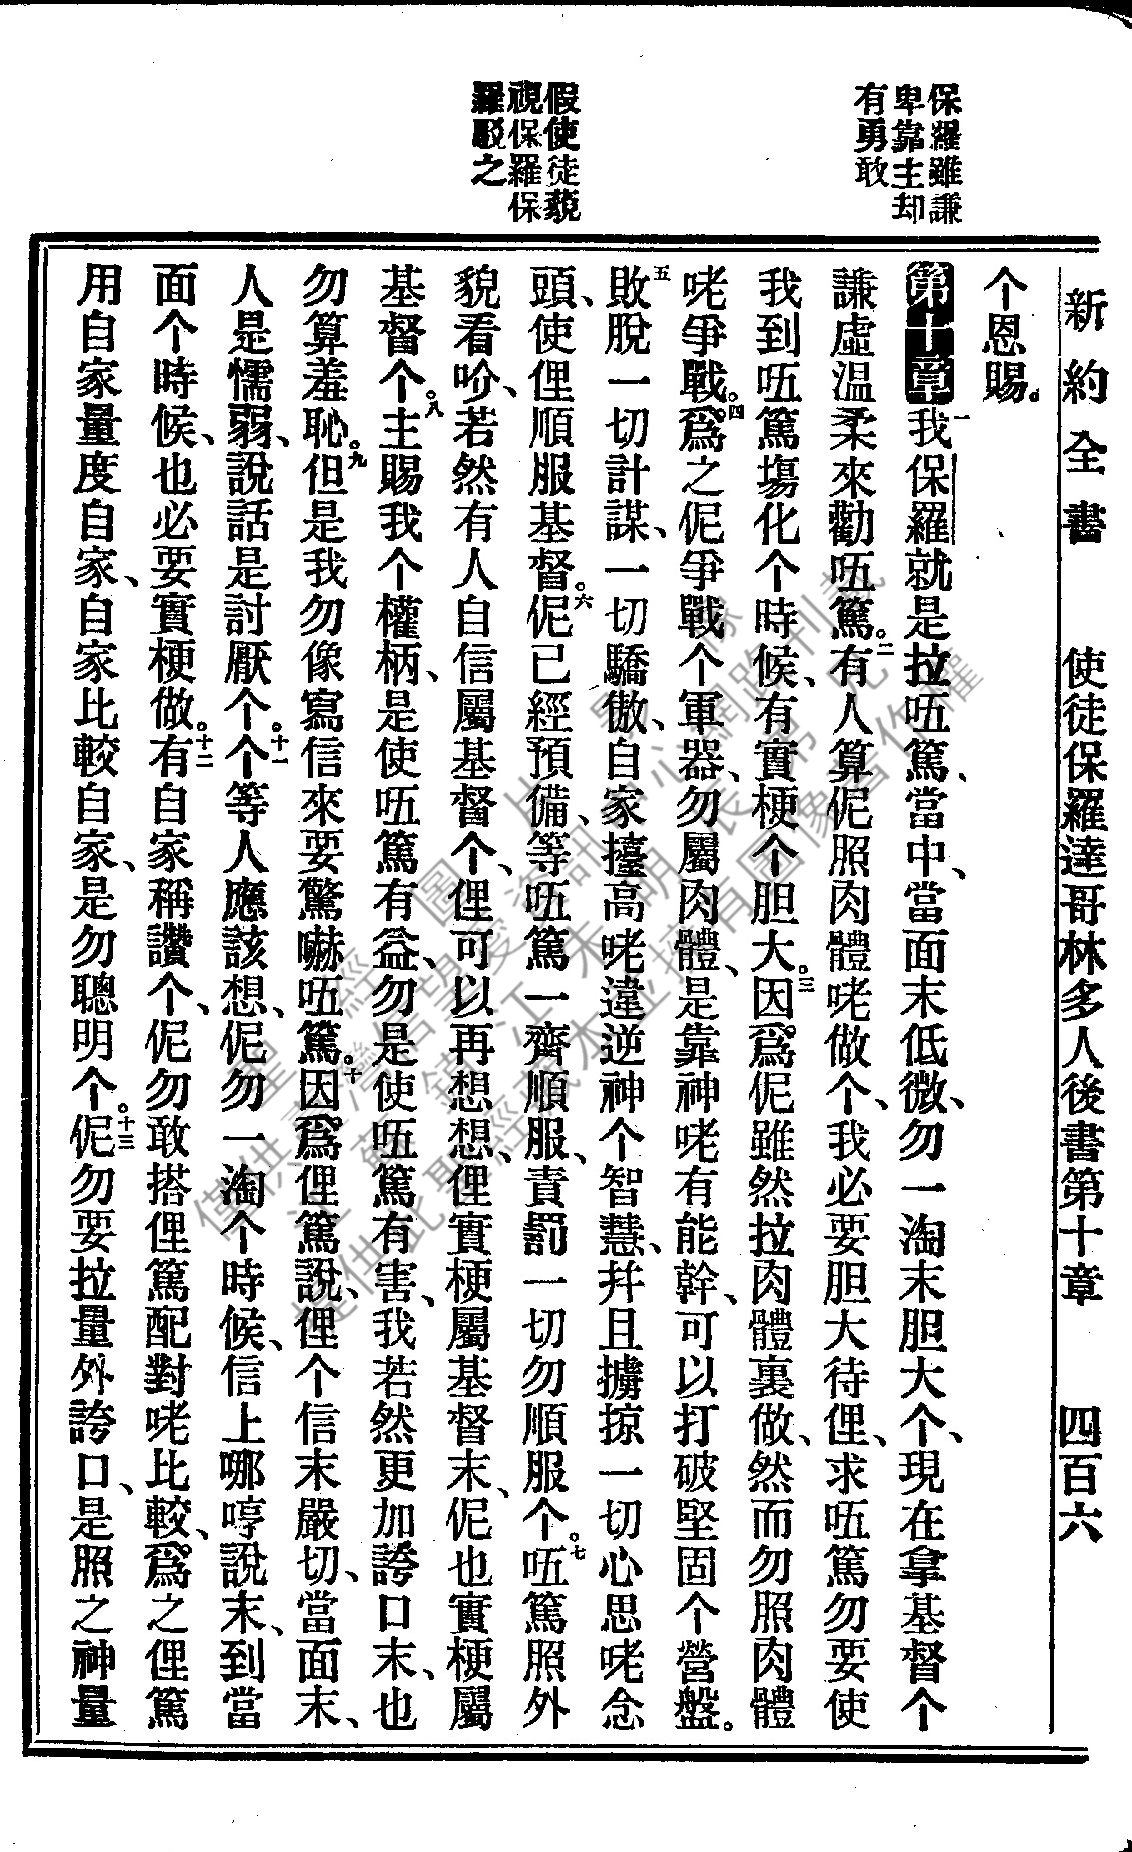 新約全書　使徒保羅達哥林多人後書第十章　四百六
保羅雖謙
卑靠主却
有勇敢
假使徒藐
視保羅保
羅駁之
个恩賜。
第十章一我保羅就是拉㕶篤、當中、當面末低微、勿一淘末胆大个、現在拿基督个
謙虛温柔來勸㕶篤。二有人算伲照肉體咾做个、我必要胆大待俚、求㕶篤勿要使
我到㕶篤塲化个時候、有實梗个胆大。三因爲伲雖然拉肉體裏做、然而勿照肉體
咾爭戰。四爲之伲爭戰个軍器、勿屬肉體、是靠神咾有能幹、可以打破堅固个營盤。
五敗脫一切計謀、一切驕傲、自家擡高咾違逆神个智慧、幷且擄掠一切心思咾念
頭、使俚順服基督。六伲已經預備、等㕶篤一齊順服、責罰一切勿順服个。七㕶篤照外
貌看吤、若然有人自信屬基督个、俚可以再想想、俚實梗屬基督末、伲也實梗屬
基督个。八主賜我个權柄、是使㕶篤有益、勿是使㕶篤有害、我若然更加誇口末、也
勿算羞恥。九但是我勿像寫信來要驚嚇㕶篤。十因爲俚篤說、俚个信末嚴切、當面末、
人是懦弱、說話是討厭个。十一个等人應該想、伲勿一淘个時候、信上哪哼說末、到當
面个時候、也必要實梗做。十二有自家稱讚个、伲勿敢搭俚篤配對咾比較、爲之俚篤
用自家量度自家、自家比較自家、是勿聰明个。十三伲勿要拉量外誇口、是照之神量